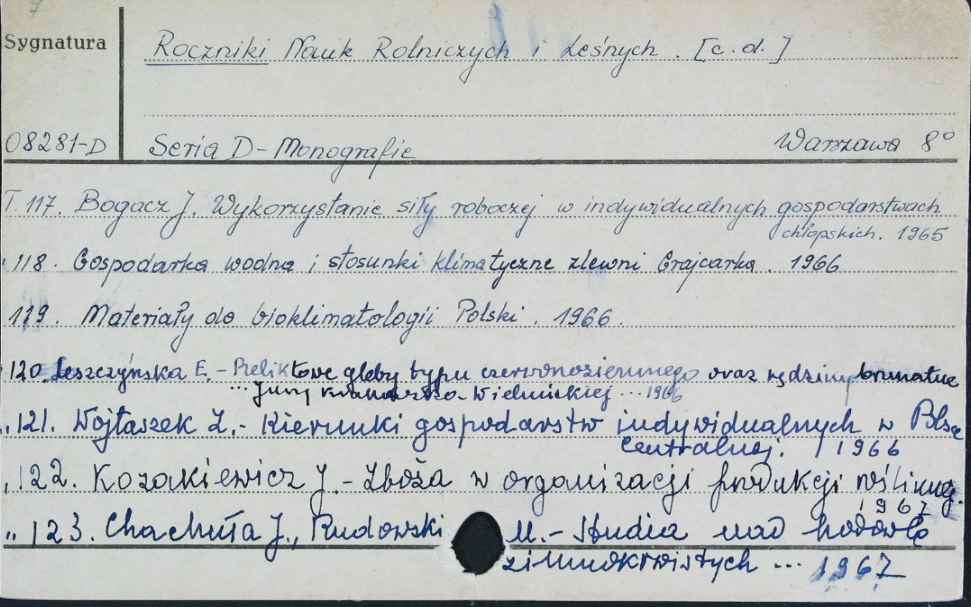 Sygnatura
Roczniki Nauk Rolniczych i Leśnych. [c.d.]
08281-D
Seria D - Monografie
Warszawa 8°
T. 117. Bogacz J. Wykorzystanie siły roboczej w indywidualnych gospodarstwach
chłopskich. 1965
" 118. Gospodarka wodna i stosunki klimatyczne zlewni Grajcarka. 1966
119. Materiały do bioklimatologii Polski. 1966.
" 120. Leszczyńska E. - Reliktowe gleby typu czerwonoziemnego oraz rędziny brunatne
... Jury Krakowsko-Wieluńskiej ... 1966
" 121. Wojtaszek Z. - Kierunki gospodarstw indywidualnych w Plsce
Centralnej. 1966
" 122. Kozakiewicz J. - Zboża w organizacji produkcji roślinnej.
1967
" 123. Chachuła J., Rudowski M. - Studia nad hodowlą
zimnokrwistych ... 1967